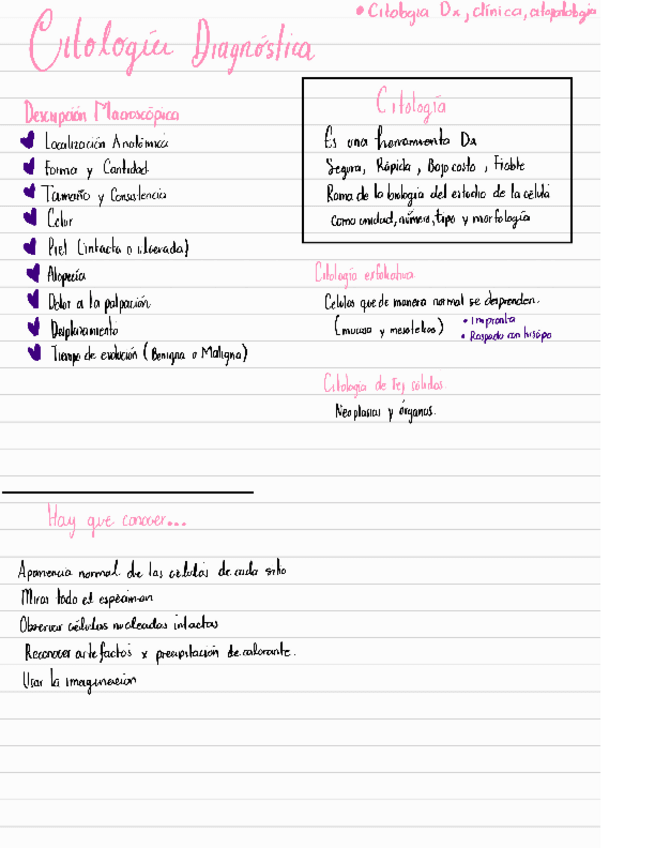 • Citología Dx, clínica, citopatología
Citología Diagnóstica
Descripción Macroscópica
Localización Anatómica
Forma y Cantidad
Tamaño y Consistencia
Color
Piel (intacta o ulcerada)
Alopecia
Dolor a la palpación
Desplazamiento
Tiempo de evolución (Benigna o Maligna)
Citología
Es una herramienta Dx
Segura, Rápida, Bajo costo, Fiable
Rama de la biología del estudio de la célula
como unidad, número, tipo y morfología
Citología exfoliativa
Células que de manera normal se desprenden.
(mucosa y mesotelios)
• Impronta
• Raspado con hisopo
Citología de Tej sólidos.
Neoplasias y órganos.
Hay que conocer...
Apariencia normal de las células de cada sitio
Mirar todo el espécimen
Observar células nucleadas intactas
Reconocer artefactos x precipitación de colorante.
Usar la imaginación